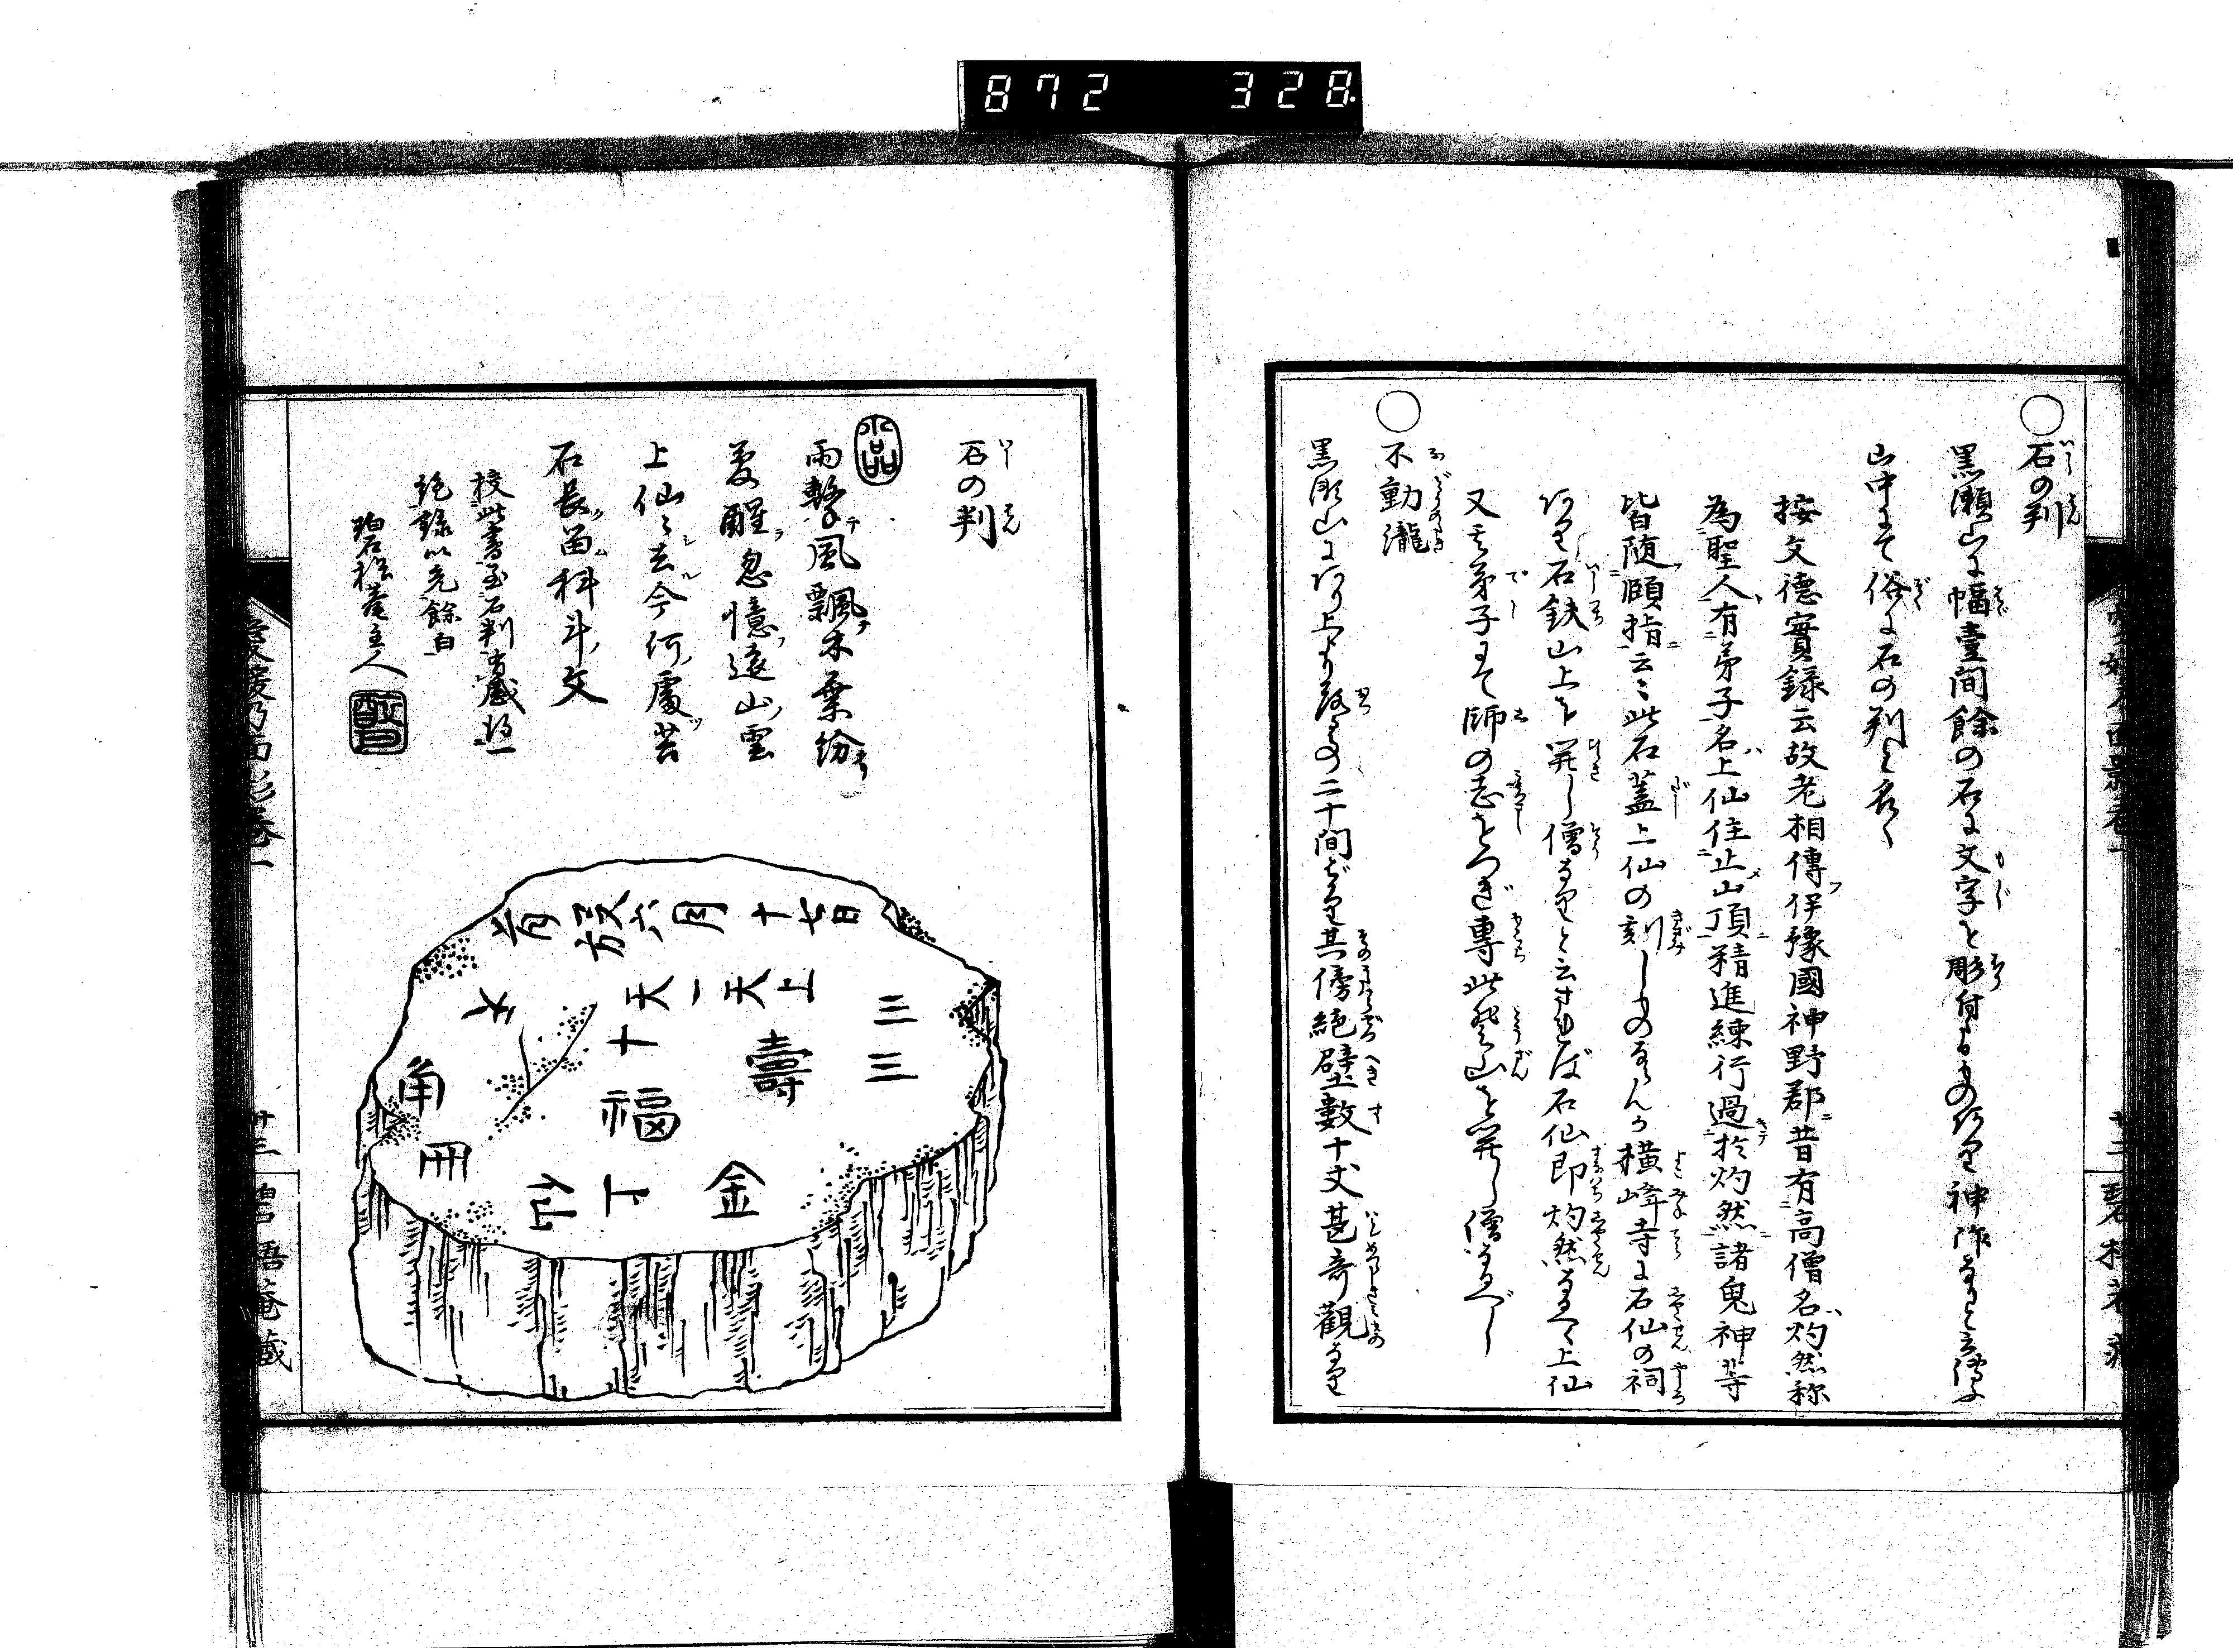 872 328
○石の判
黒瀬山に幅壹間餘の石に文字を彫付たるもの阿里神作なりと言傳ふ
山中にて俗に石の判と名く
按文徳實録云故老相傳伊豫國神野郡昔有高僧名灼然称
為聖人有弟子名上仙住止山頂精進練行過於灼然諸鬼神等
皆随頤指云々此石蓋上仙の刻しものならんか横峰寺に石仙の祠
阿里石鉄山上を開し僧なりと云すれば石仙即灼然なるべく上仙
又其弟子にて師の志をつぎ專此登山を開し僧なるべし
○不動瀧
黒瀬山に阿り上より落るの二十間ばかり其傍絶壁数十丈甚奇觀なり
石の判
雨撃風飄木葉紛
夢醒忽憶遠山雲
上仙々去今何處苔
石長留科斗文
校此書至石判有感賦一
絶録以充餘白
碧梧菴主人
日七十月六
上天一天十
三三
壽
福
大
角
金
下
仙
愛媛乃面影巻一
廿三
碧梧菴蔵